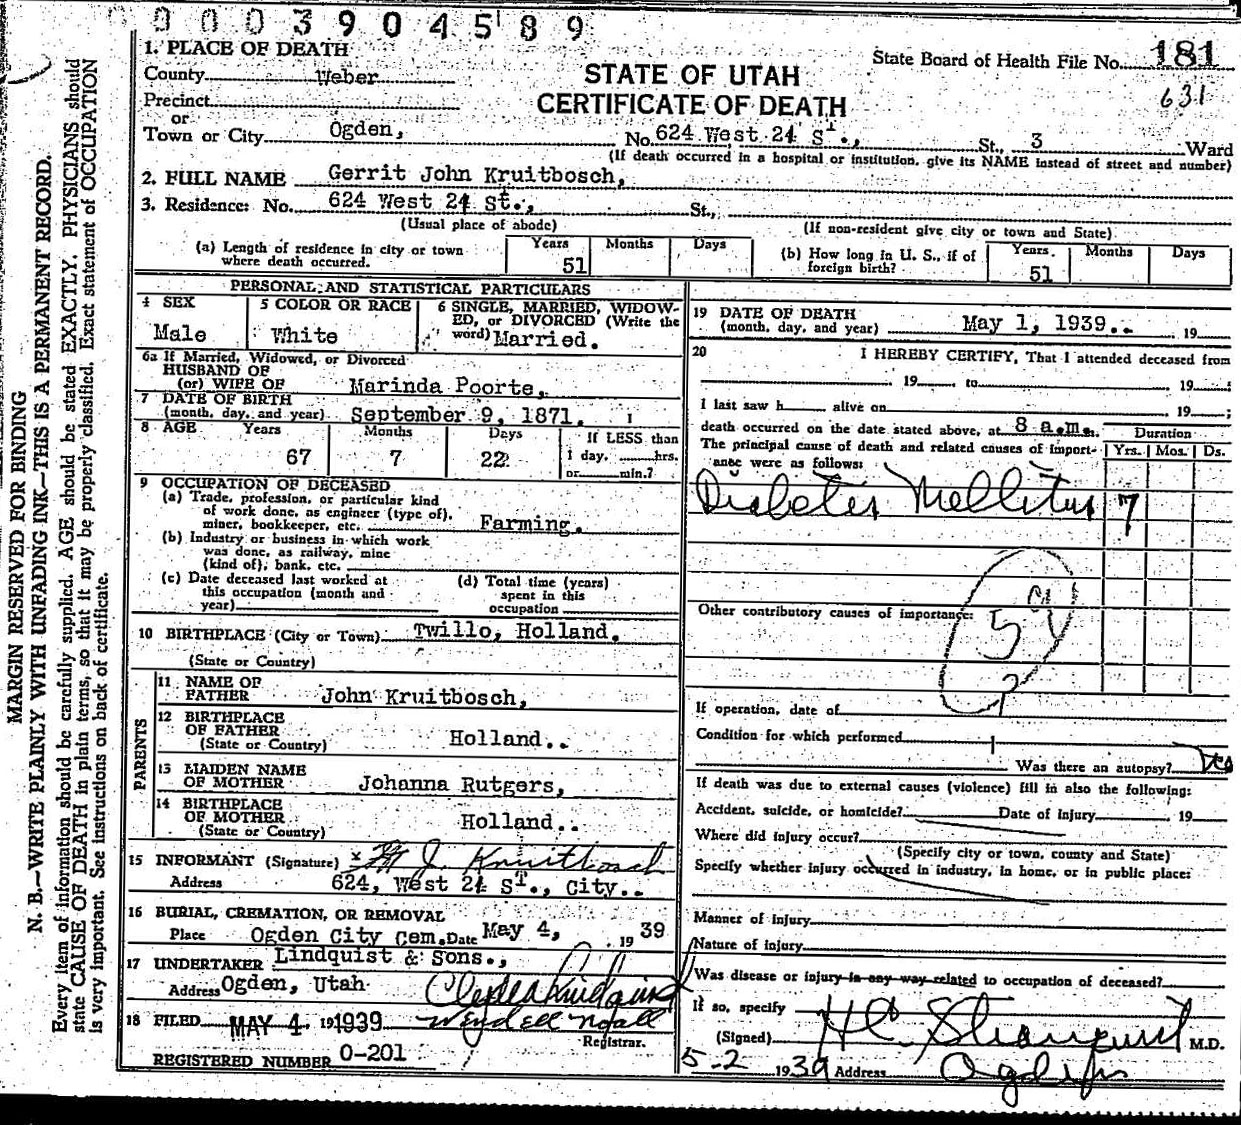 0003904589
1. PLACE OF DEATH
County Weber
Precinct
or
Town or City Ogden,
STATE OF UTAH
CERTIFICATE OF DEATH
State Board of Health File No. 181
631
No. 624 West 24 St., St., 3 Ward
(If death occurred in a hospital or institution, give its NAME instead of street and number)
2. FULL NAME Gerrit John Kruitbosch,
3. Residence: No. 624 West 24 St., St.,
(Usual place of abode) (If non-resident give city or town and State)
(a) Length of residence in city or town where death occurred. Years 51 Months Days
(b) How long in U. S., if of foreign birth? Years. 51 Months Days
PERSONAL AND STATISTICAL PARTICULARS
4 SEX Male
5 COLOR OR RACE White
6 SINGLE, MARRIED, WIDOW-
ED, or DIVORCED (Write the
word) Married.
6a If Married, Widowed, or Divorced
HUSBAND OF
(or) WIFE OF Marinda Poorte,
7 DATE OF BIRTH
(month, day, and year) September 9, 1871.
8 AGE Years 67 Months 7 Days 22
If LESS than
1 day, hrs.
or min.?
9 OCCUPATION OF DECEASED
(a) Trade, profession, or particular kind
of work done, as engineer (type of),
miner, bookkeeper, etc. Farming.
(b) Industry or business in which work
was done, as railway, mine
(kind of), bank, etc.
(c) Date deceased last worked at
this occupation (month and
year)
(d) Total time (years)
spent in this
occupation
10 BIRTHPLACE (City or Town) Twillo, Holland.
(State or Country)
PARENTS
11 NAME OF
FATHER John Kruitbosch,
12 BIRTHPLACE
OF FATHER
(State or Country) Holland..
13 MAIDEN NAME
OF MOTHER Johanna Rutgers,
14 BIRTHPLACE
OF MOTHER
(State or Country) Holland..
15 INFORMANT (Signature) x J. Kruitbosch
Address 624, West 24 St., City..
16 BURIAL, CREMATION, OR REMOVAL
Place Ogden City Cem. Date May 4, 1939
17 UNDERTAKER Lindquist & Sons.,
Address Ogden, Utah
18 FILED MAY 4 191939 Wendell Noall
Registrar.
REGISTERED NUMBER 0-201
19 DATE OF DEATH
(month, day, and year) May 1, 1939.. 19
20 I HEREBY CERTIFY, That I attended deceased from
19 , to , 19 ;
I last saw h alive on , 19 ;
death occurred on the date stated above, at 8 a.m. Duration
The principal cause of death and related causes of import- Yrs. Mos. Ds.
ance were as follows:
Diabetes Mellitus 7
Other contributory causes of importance:
59
If operation, date of
Condition for which performed
Was there an autopsy?
If death was due to external causes (violence) fill in also the following:
Accident, suicide, or homicide? Date of injury 19
Where did injury occur?
(Specify city or town, county and State)
Specify whether injury occurred in industry, in home, or in public place:
Manner of injury
Nature of injury
Was disease or injury in any way related to occupation of deceased?
If so, specify
(Signed) M.D.
5-2 1939 Address Ogden
MARGIN RESERVED FOR BINDING
N. B.—WRITE PLAINLY WITH UNFADING INK—THIS IS A PERMANENT RECORD.
Every item of information should be carefully supplied. AGE should be stated EXACTLY. PHYSICIANS should
state CAUSE OF DEATH in plain terms, so that it may be properly classified. Exact statement of OCCUPATION
is very important. See instructions on back of certificate.